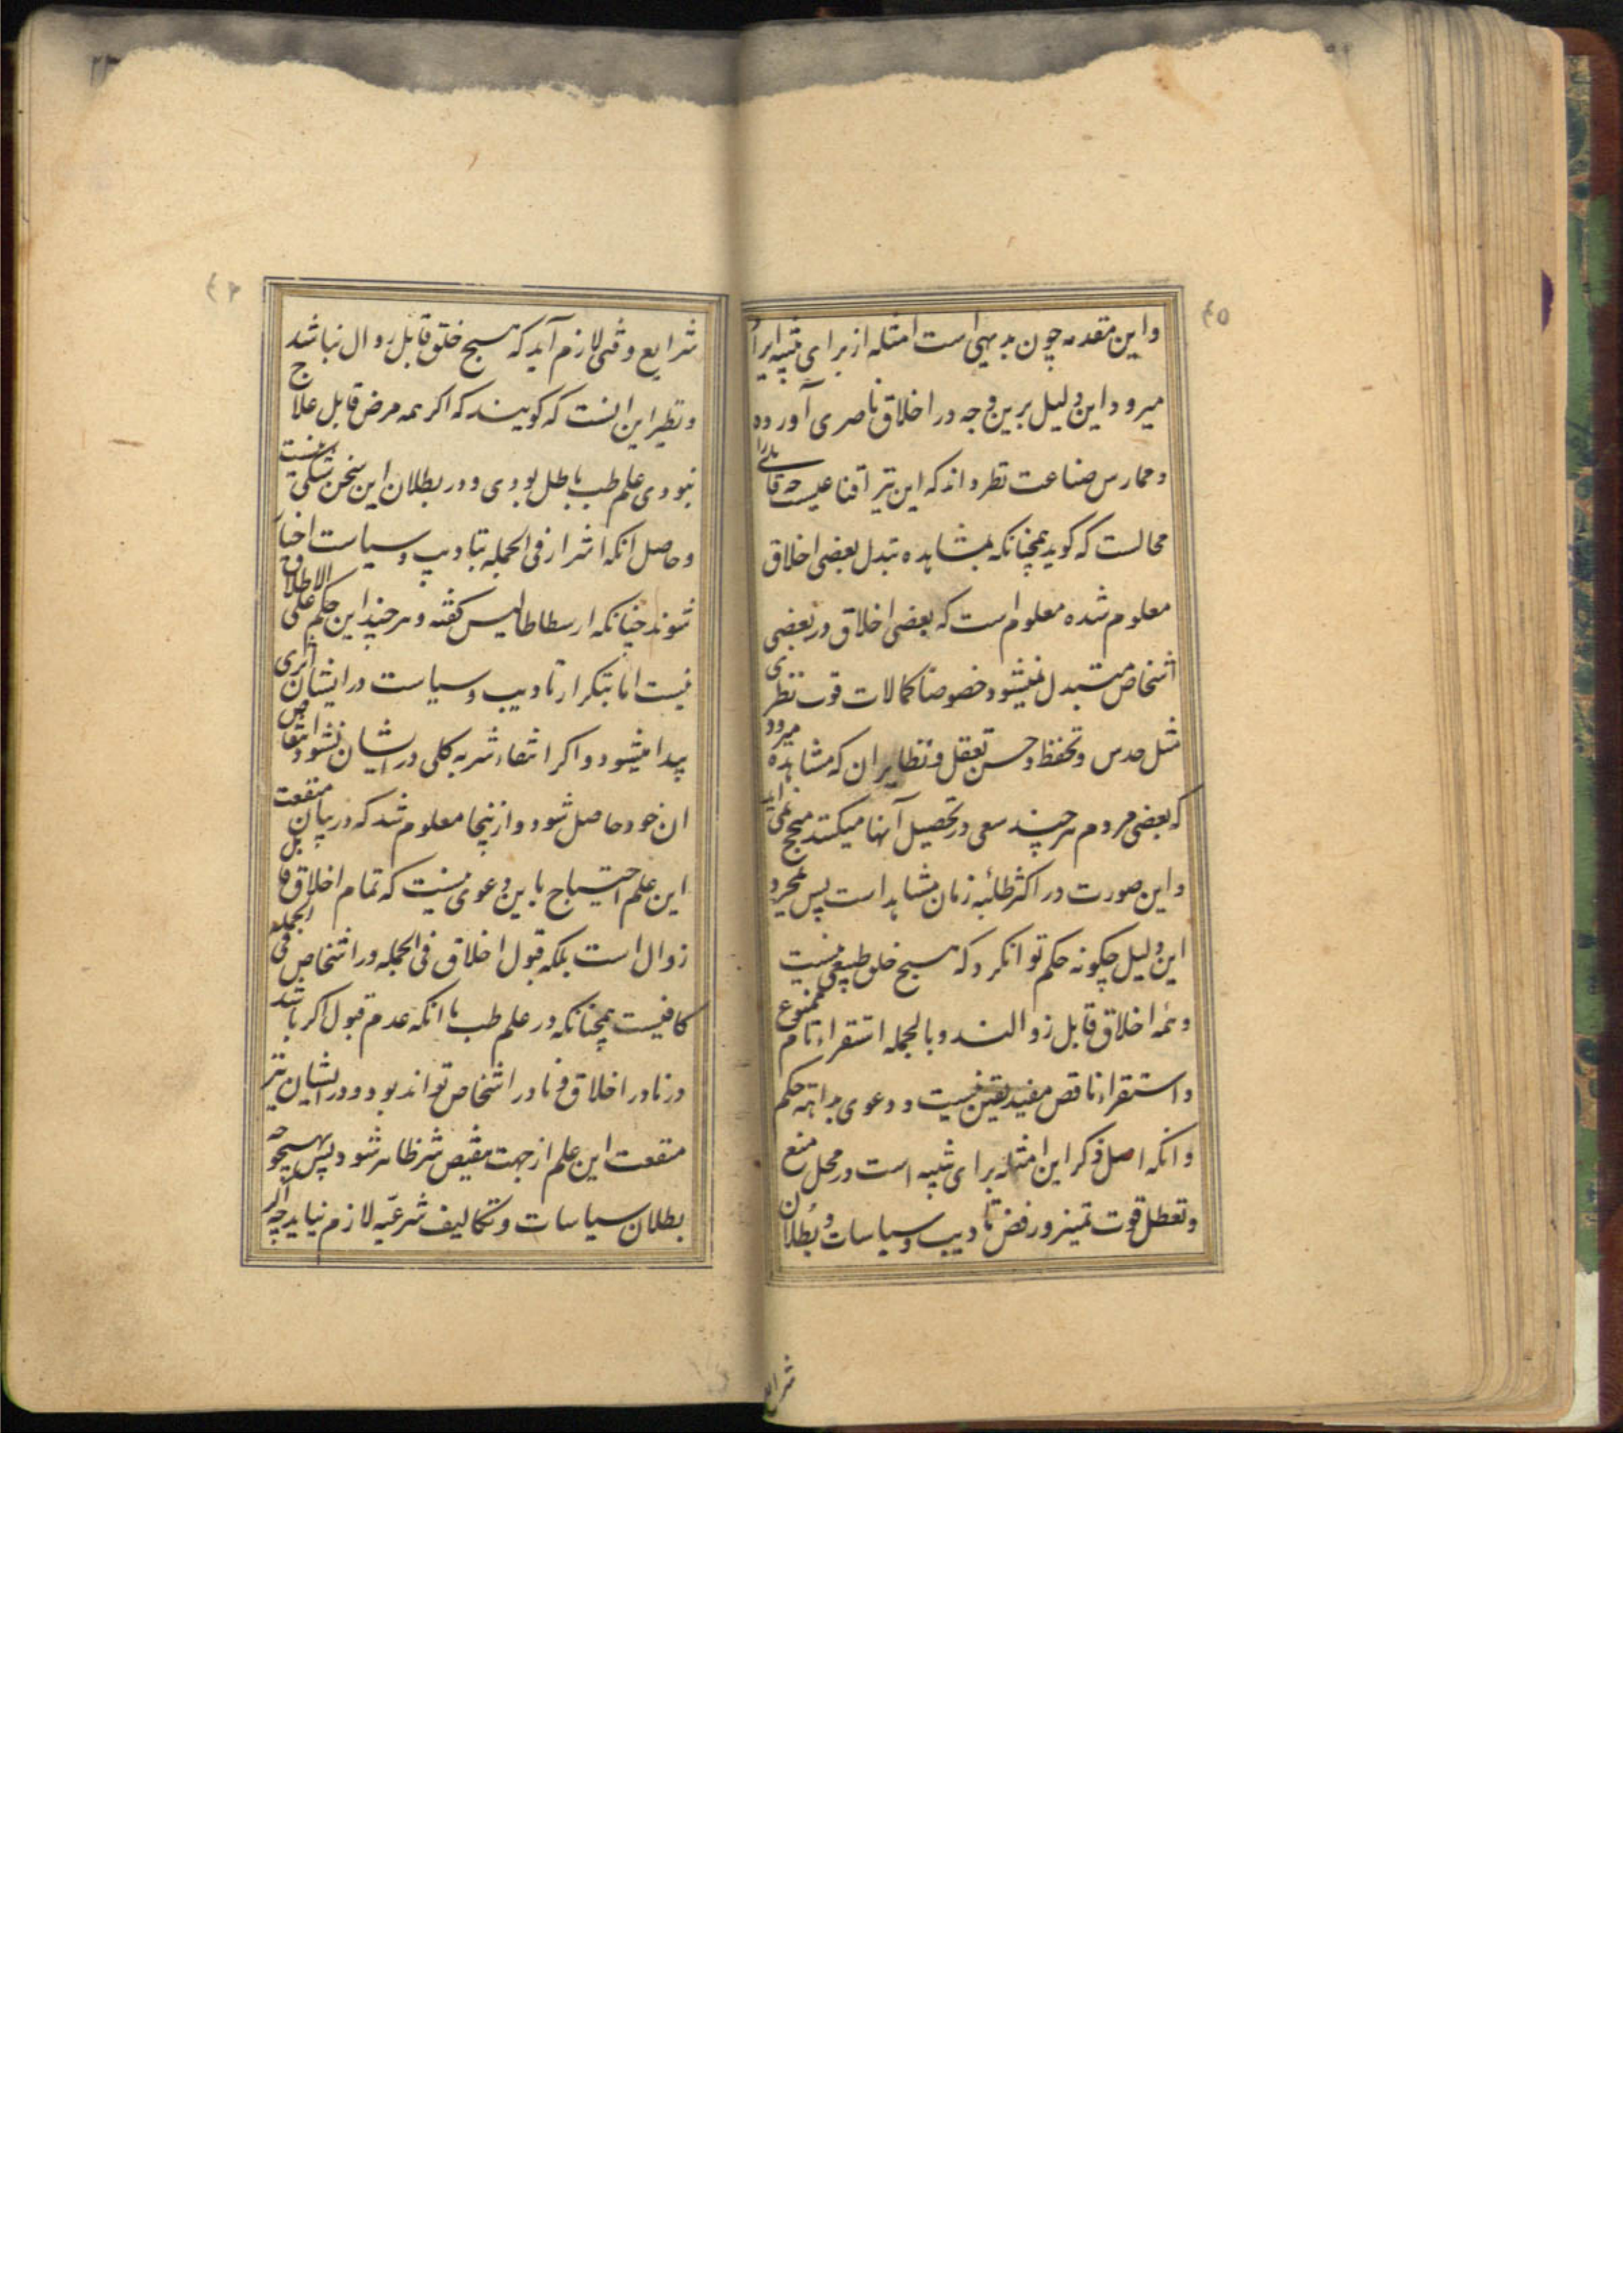 ٤٥
و این مقدمه چون بدیهی است امثله از برای تنبیه ایراد
میرود و این دلیل برین وجه در اخلاق ناصری آورده
و ممارس صناعت نظر داند که این نیز اقناعیست چه قائلی را
محالست که کوید همچنانکه بمشاهده تبدل بعضی اخلاق
معلوم شده معلوم است که بعضی اخلاق در بعضی
اشخاص متبدل نمیشود خصوصا کمالات قوت نظری
مثل حدس و تحفظ و حسن تعقل و نظایر ان که مشاهده میرود
که بعضی مردم هر چند سعی در تحصیل آنها میکنند منجح نمی اید
و این صورت در اکثر طلبه زمان مشاهد است پس بمجرد
این دلیل چکونه حکم توان کرد که هیچ خلق طبیعی نیست
و همه اخلاق قابل زوالند و بالجمله استقراء تام ممنوع
و استقراء ناقص مفید یقین نیست و دعوی بداهه حکم
و انکه اصل ذکر این امثله برای تنبیه است در محل منع
و تعطل قوت تمیز و رفض تادیب و سیاسات و بطلان
شرایع
٤٦
شرایع وقتی لازم آید که هیچ خلق قابل زوال نباشد
و نظیر این انست که کویند که اکر همه مرض قابل علاج
نبودی علم طب باطل بودی و در بطلان این سخن شکی نیست
و حاصل انکه اشرار فی الجمله بتادیب و سیاست اخیار
شوند چنانکه ارسطاطالیس کفته و هر چند این حکم علی الاطلاق
نیست اما بتکرار تادیب و سیاست در ایشان اثری
پیدا میشود و اکر انتفاء شر به کلی در ایشان نشود انتقاص
ان خود حاصل شود و از ینجا معلوم شد که در بیان منفعت
این علم احتیاج باین دعوی نیست که تمام اخلاق قابل
زوال است بلکه قبول اخلاق فی الجمله در اشخاص فی الجمله
کافیست همچنانکه در علم طب با انکه عدم قبول اکر باشد
در نادر اخلاق و نادر اشخاص تواند بود و در ایشان نیز
منفعت این علم از جهت تنقیص شر ظاهر شود پس بهیچ وجه
بطلان سیاسات و تکالیف شرعیه لازم نیاید چه اکر